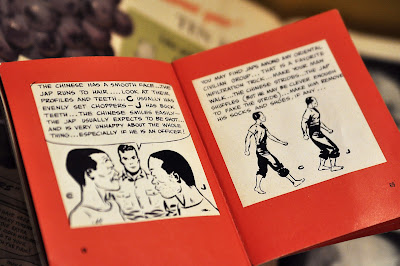 THE CHINESE HAS A SMOOTH FACE...THE
JAP RUNS TO HAIR.....LOOK AT THEIR
PROFILES AND TEETH... C USUALLY HAS
EVENLY SET CHOPPERS— J HAS BUCK
TEETH.... THE CHINESE SMILES EASILY—
THE JAP USUALLY EXPECTS TO BE SHOT...
AND IS VERY UNHAPPY ABOUT THE WHOLE
THING...ESPECIALLY IF HE IS AN OFFICER!
C
J
YOU MAY FIND JAPS AMONG ANY ORIENTAL
CIVILIAN GROUP... THAT IS A FAVORITE
INFILTRATION TRICK... MAKE YOUR MAN
WALK...THE CHINESE STRIDES...THE JAP
SHUFFLES (BUT HE MAY BE CLEVER ENOUGH
TO FAKE THE STRIDE)... MAKE HIM REMOVE
HIS SOCKS AND SHOES, IF ANY...
C
J